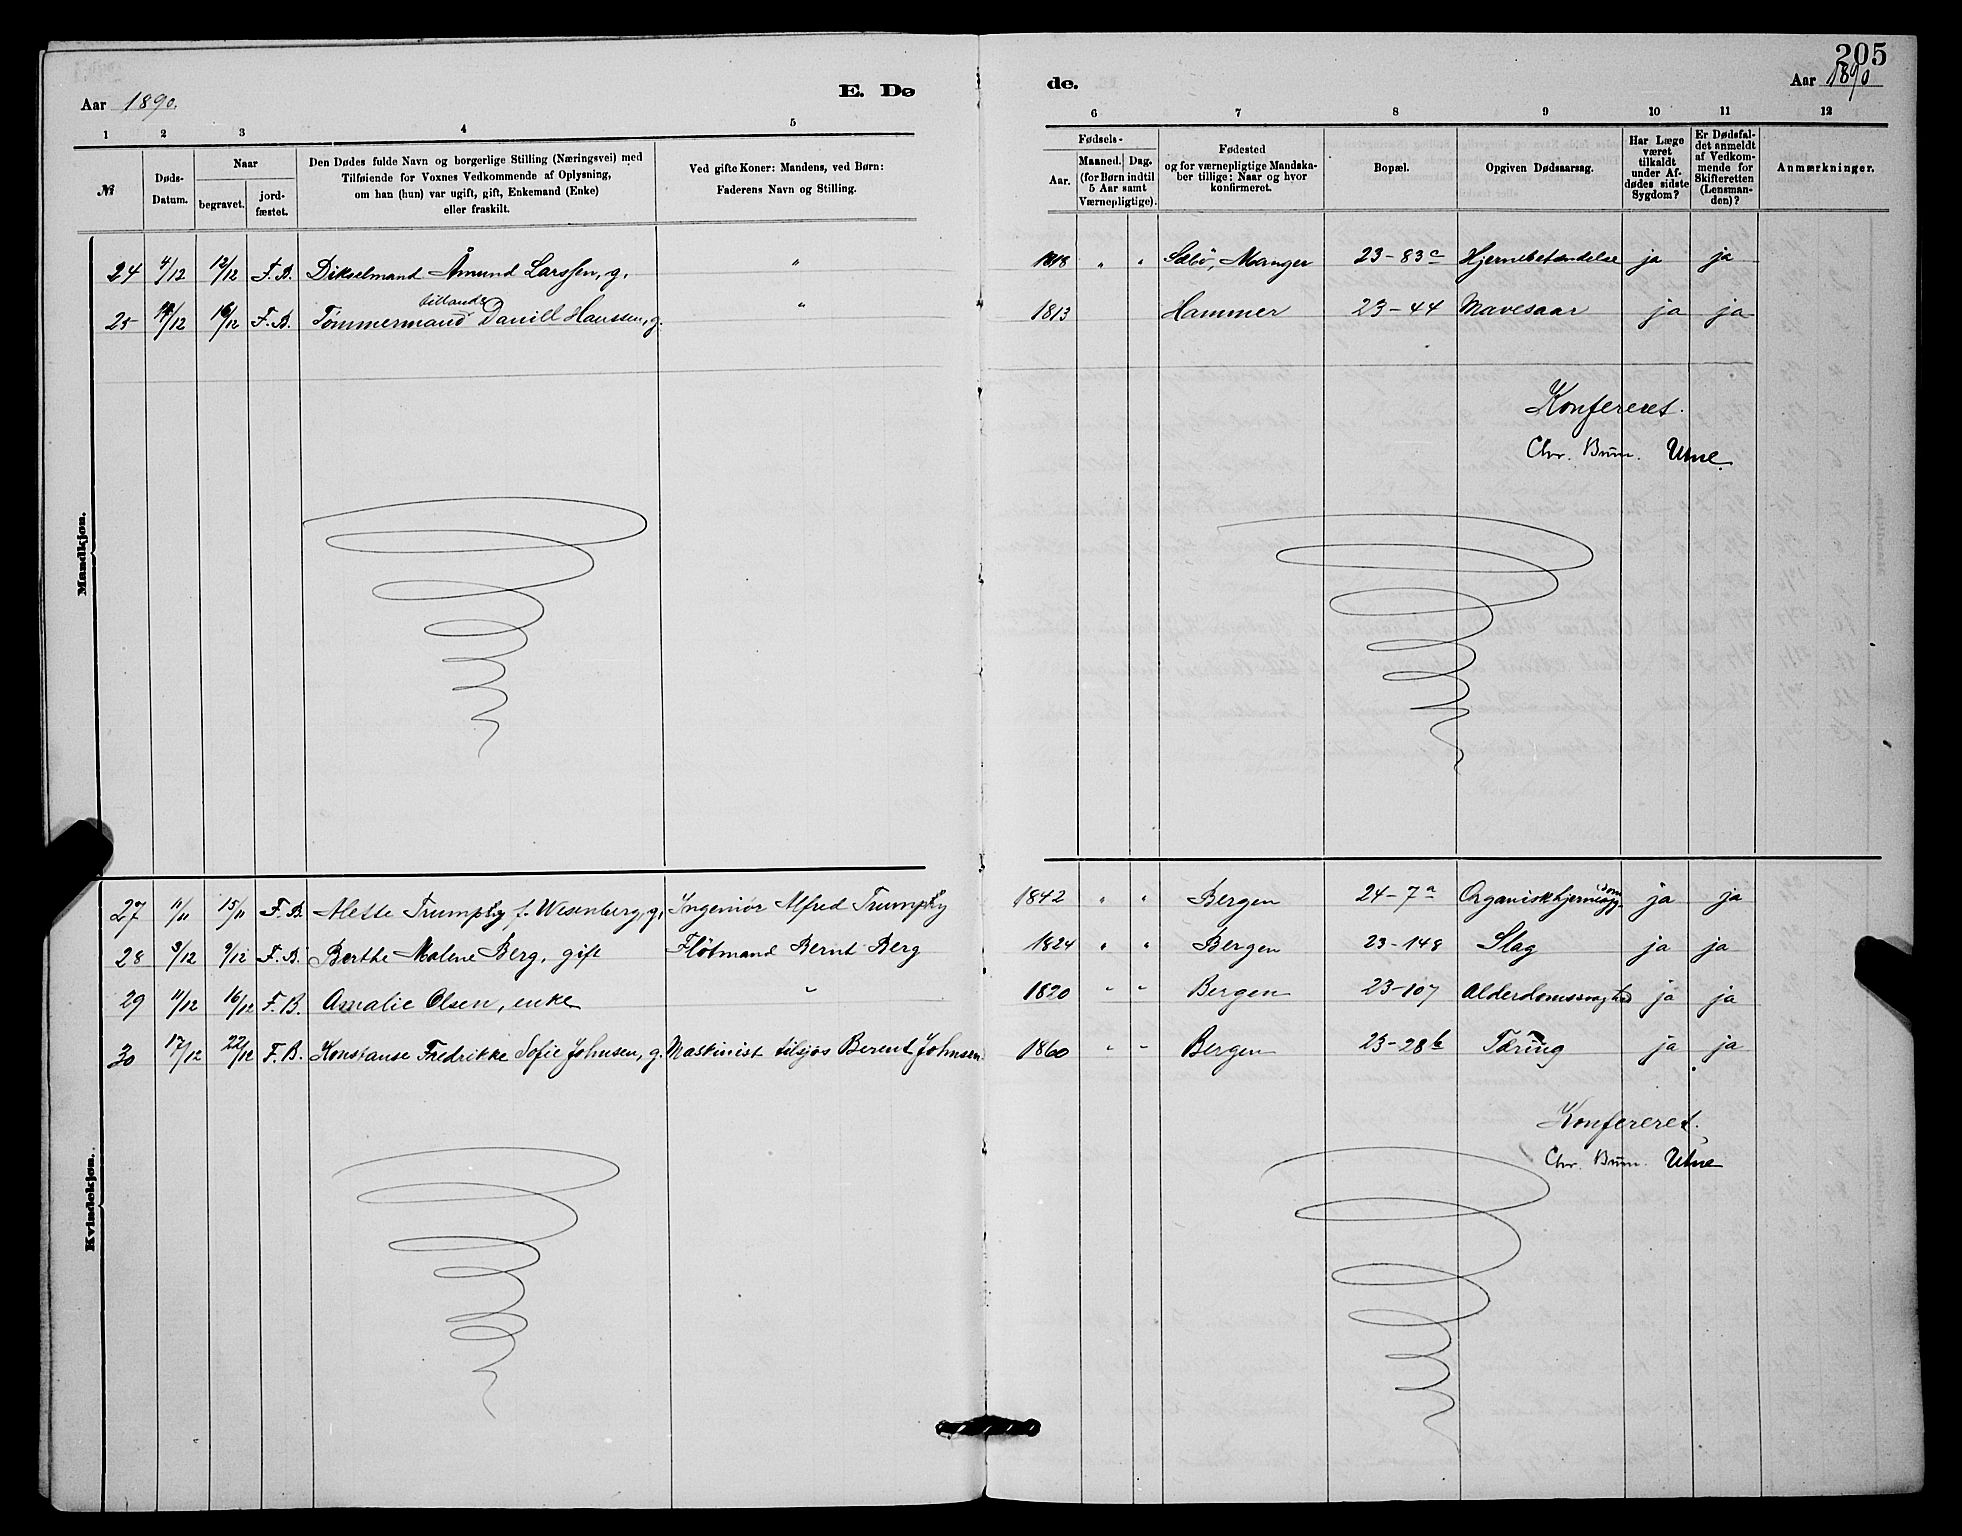 205
Aar 1890.
E. Dø
de.
Aar 1890
1 2 3 4 5 6 7 8 9 10 11 12
№
Døds-Datum.
Naar
begravet.
jord-fæstet.
Den Dødes fulde Navn og borgerlige Stilling (Næringsvei) med
Tilføiende for Voxnes Vedkommende af Oplysning,
om han (hun) var ugift, gift, Enkemand (Enke)
eller fraskilt.
Ved gifte Koner: Mandens, ved Børn:
Faderens Navn og Stilling.
Fødsels-
Aar.
Maaned. Dag.
(for Børn indtil
5 Aar samt
Værnepligtige).
Fødested
og for værnepligtige Mandska-
ber tillige: Naar og hvor
konfirmeret.
Bopæl.
Opgiven Dødsaarsag.
Har Læge
været
tilkaldt
under Af-
dødes sidste
Sygdom?
Er Dødsfal-
det anmeldt
af Vedkom-
mende for
Skifteretten
(Lensman-
den)?
Anmærkninger.
Mandkjøn.
24 4/12 12/12 F.B. Dikselmand Åmund Larssen, g. " 1818 " " Sæbø, Manger 23-83c Hjernebetændelse ja ja
tillands
25 /12 16/12 F.B. Tømmermand Daniel Hanssen, g. " 1813 Hammer 23-44 Mavesaar ja ja
Konfereret.
Chr. Bruun. Utne
Kvindekjøn.
27 11/11 15/11 F.B. Mette Trumpy, f. Wesenberg, g. Ingeniør Alfred Trumpy 1842 " " Bergen 24-7a Organisk hjernesygdom ja ja
28 3/12 9/12 F.B. Berthe Malene Berg, gift Fløtmand Bernt Berg 1824 " " Bergen 23-148 Slag ja ja
29 11/12 16/12 F.B. Amalie Olsen, enke " 1820 " " Bergen 23-107 Alderdomssvaghed ja ja
30 17/12 22/12 F.B. Konstanse Fredrikke Sofie Johnsen, g. Maskinist tilsjøs Berent Johnsen 1860 " " Bergen 23-28b Tæring ja ja
Konfereret.
Chr. Bruun. Utne